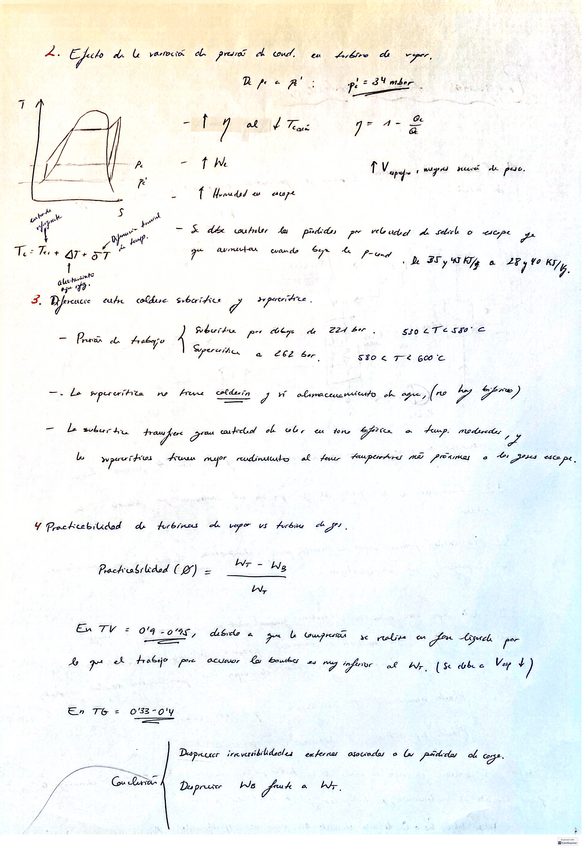 2. Efecto de la variación de presión de cond. en turbina de vapor.
De pc a pc' : pc' = 34 mbar
T
- ↑ η al ↓ Tcond η = 1 - Qc/Qc
Pc
Pc'
S
- ↑ Wc
↑ Vespecífico, mayores sección de paso.
- ↑ Humedad en escape
- Se debe controlar las pérdidas por velocidad de salida o escape ya
que aumentan cuando baja la p.cond. De 35 y 45 KJ/kg a 28 y 40 KJ/kg.
entrada refrigerante
Diferencia terminal de temp.
Tc = Tc1 + ΔT + δT
calentamiento agua refrig.
3. Diferencia entre caldera subcrítica y supercrítica.
- Presión de trabajo { Subcrítica por debajo de 221 bar. 530 < T < 580°C
Supercrítica a 262 bar. 580 < T < 600°C
-. La supercrítica no tiene calderín y sí almacenamiento de agua, (no hay bifásico)
- La subcrítica transfiere gran cantidad de calor en zona bifásica a temp. moderadas, y
las supercríticas tienen mejor rendimiento al tener temperaturas más próximas a los gases escape.
4 Practicabilidad de turbinas de vapor vs turbina de gas.
Practicabilidad (Ø) = WT - WB / WT
En TV = 0'9 - 0'95, debido a que la compresión se realiza en fase líquida por
lo que el trabajo para accionar las bombas es muy inferior al WT. (Se debe a Vesp ↓)
En TG = 0'33-0'4
Conclusión
Despreciar irreversibilidades externas asociadas a las pérdidas de carga.
Despreciar WB frente a WT.